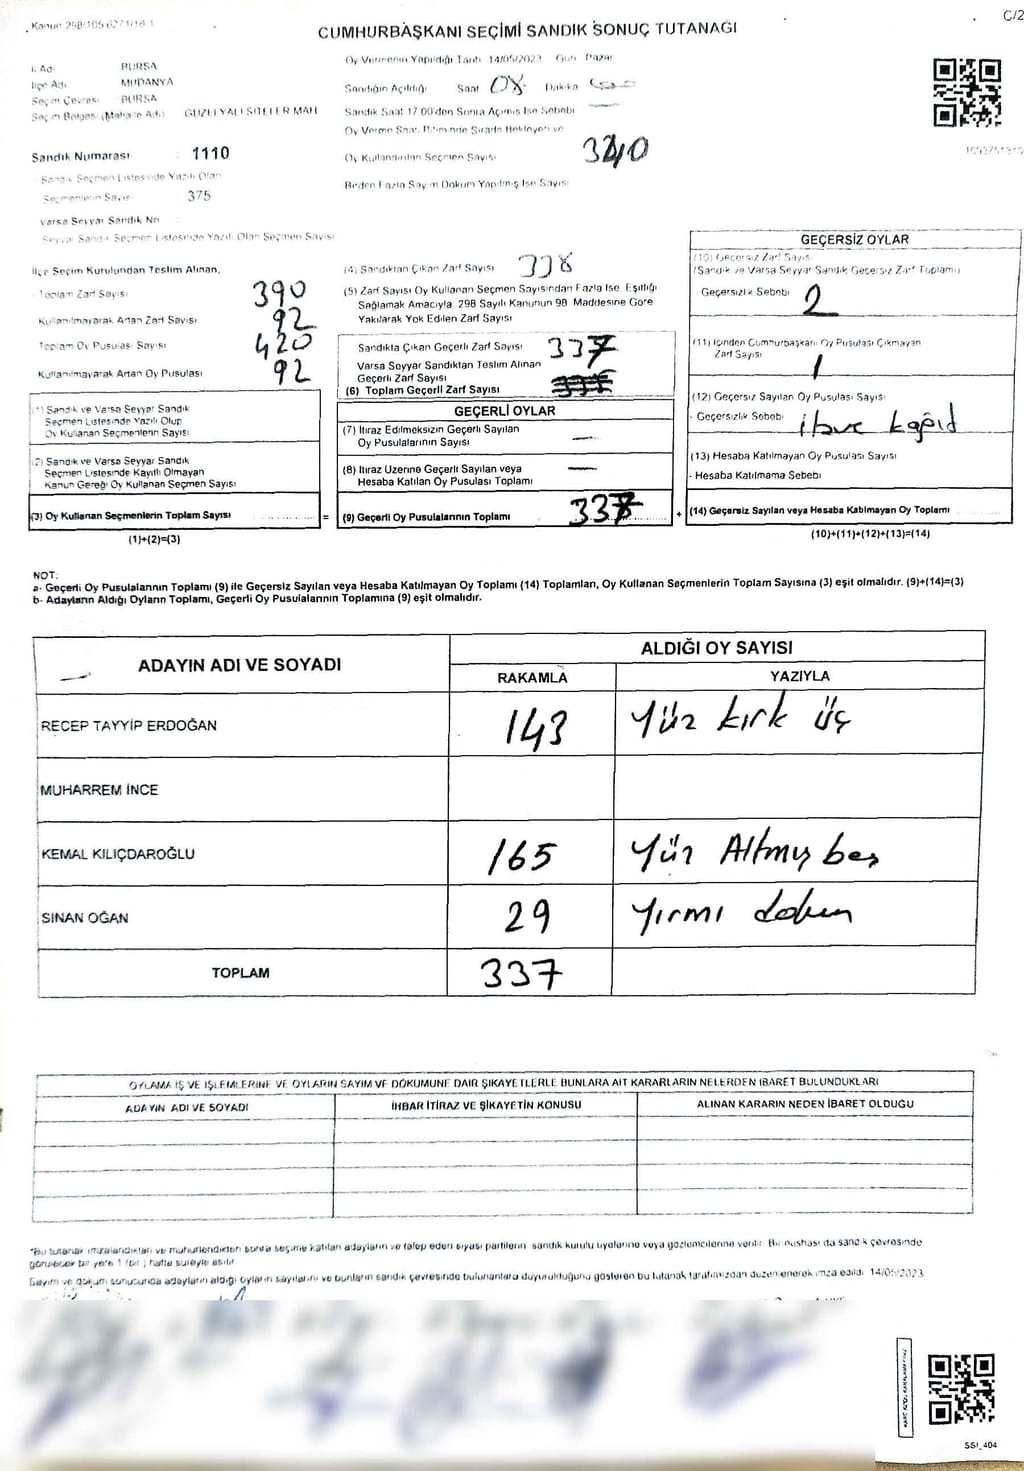 Kanun 298/105
C/2
CUMHURBAŞKANI SEÇİMİ SANDIK SONUÇ TUTANAĞI
İl Adı BURSA
İlçe Adı MUDANYA
Seçim Çevresi BURSA
Seçim Bölgesi (Mahalle Adı) GÜZELYALI SİTELER MAH
Sandık Numarası : 1110
Sandık Seçmen Listesinde Yazılı Olan
Seçmenlerin Sayısı 375
Varsa Seyyar Sandık No
Seyyar Sandık Seçmen Listesinde Yazılı Olan Seçmen Sayısı
Oy Vermenin Yapıldığı Tarih 14/05/2023 Gün Pazar
Sandığın Açıldığı Saat 08 Dakika
Sandık Saat 17.00'den Sonra Açılmış İse Sebebi —
Oy Verme Saati Bitiminde Sırada Bekleyen ve
Oy Kullandırılan Seçmen Sayısı 340
Birden Fazla Sayım Döküm Yapılmış İse Sayısı
İlçe Seçim Kurulundan Teslim Alınan,
Toplam Zarf Sayısı 390
Kullanılmayarak Artan Zarf Sayısı 92
Toplam Oy Pusulası Sayısı 420
Kullanılmayarak Artan Oy Pusulası 92
(1) Sandık ve Varsa Seyyar Sandık
Seçmen Listesinde Yazılı Olup
Oy Kullanan Seçmenlerin Sayısı
(2) Sandık ve Varsa Seyyar Sandık
Seçmen Listesinde Kayıtlı Olmayan
Kanun Gereği Oy Kullanan Seçmen Sayısı
(3) Oy Kullanan Seçmenlerin Toplam Sayısı ............... =
(1)+(2)=(3)
(4) Sandıktan Çıkan Zarf Sayısı 338
(5) Zarf Sayısı Oy Kullanan Seçmen Sayısından Fazla İse, Eşitliği
Sağlamak Amacıyla 298 Sayılı Kanunun 98. Maddesine Göre
Yakılarak Yok Edilen Zarf Sayısı
Sandıkta Çıkan Geçerli Zarf Sayısı 337
Varsa Seyyar Sandıktan Teslim Alınan
Geçerli Zarf Sayısı
(6) Toplam Geçerli Zarf Sayısı
GEÇERLİ OYLAR
(7) İtiraz Edilmeksizin Geçerli Sayılan
Oy Pusulalarının Sayısı —
(8) İtiraz Üzerine Geçerli Sayılan veya
Hesaba Katılan Oy Pusulası Toplamı —
(9) Geçerli Oy Pusulalarının Toplamı 337 +
GEÇERSİZ OYLAR
(10) Geçersiz Zarf Sayısı
(Sandık ve Varsa Seyyar Sandık Geçersiz Zarf Toplamı)
- Geçersizlik Sebebi 2
(11) İçinden Cumhurbaşkanı Oy Pusulası Çıkmayan
Zarf Sayısı 1
(12) Geçersiz Sayılan Oy Pusulası Sayısı
- Geçersizlik Sebebi
(13) Hesaba Katılmayan Oy Pusulası Sayısı
- Hesaba Katılmama Sebebi
(14) Geçersiz Sayılan veya Hesaba Katılmayan Oy Toplamı ...............
(10)+(11)+(12)+(13)=(14)
NOT:
a- Geçerli Oy Pusulalarının Toplamı (9) ile Geçersiz Sayılan veya Hesaba Katılmayan Oy Toplamı (14) Toplamları, Oy Kullanan Seçmenlerin Toplam Sayısına (3) eşit olmalıdır. (9)+(14)=(3)
b- Adayların Aldığı Oyların Toplamı, Geçerli Oy Pusulalarının Toplamına (9) eşit olmalıdır.
ADAYIN ADI VE SOYADI
ALDIĞI OY SAYISI
RAKAMLA YAZIYLA
RECEP TAYYİP ERDOĞAN 143 Yüz kırk üç
MUHARREM İNCE
KEMAL KILIÇDAROĞLU 165 Yüz Altmış beş
SİNAN OĞAN 29 Yirmi dokuz
TOPLAM 337
OYLAMA İŞ VE İŞLEMLERİNE VE OYLARIN SAYIM VE DÖKÜMÜNE DAİR ŞİKAYETLERLE BUNLARA AİT KARARLARIN NELERDEN İBARET BULUNDUKLARI
ADAYIN ADI VE SOYADI İHBAR İTİRAZ VE ŞİKAYETİN KONUSU ALINAN KARARIN NEDEN İBARET OLDUĞU
*Bu tutanak imzalandıktan ve mühürlendikten sonra seçime katılan adayların ve talep eden siyasi partilerin sandık kurulu üyelerine veya gözlemcilerine verilir. Bir nüshası da sandık çevresinde
görülecek bir yere 1 (bir) hafta süreyle asılır
Sayım ve döküm sonucunda adayların aldığı oyların sayılarını ve bunların sandık çevresinde bulunanlara duyurulduğunu gösteren bu tutanak tarafımızdan düzenlenerek imza edildi. 14/05/2023
SSI_404